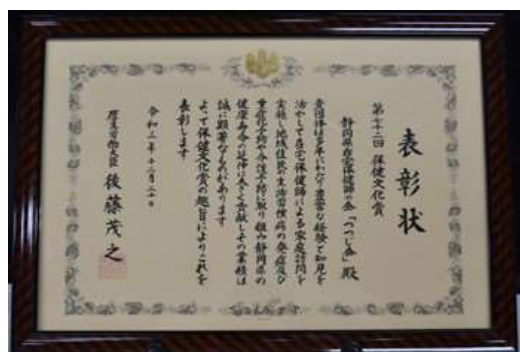 表彰状
第七十三回 保健文化賞
静岡県在宅保健師の会「つつじ会」殿
貴団体は多年にわたり豊富な経験と知見を
活かして在宅保健師による家庭訪問を
実施し地域住民の生活習慣病の発症及び
重症化予防や介護予防に取り組み静岡県の
健康寿命の延伸に大きく貢献しその業績は
誠に顕著なものがあります
よって保健文化賞の趣旨によりこれを
表彰します
令和三年十二月二十日
厚生労働大臣 後藤茂之